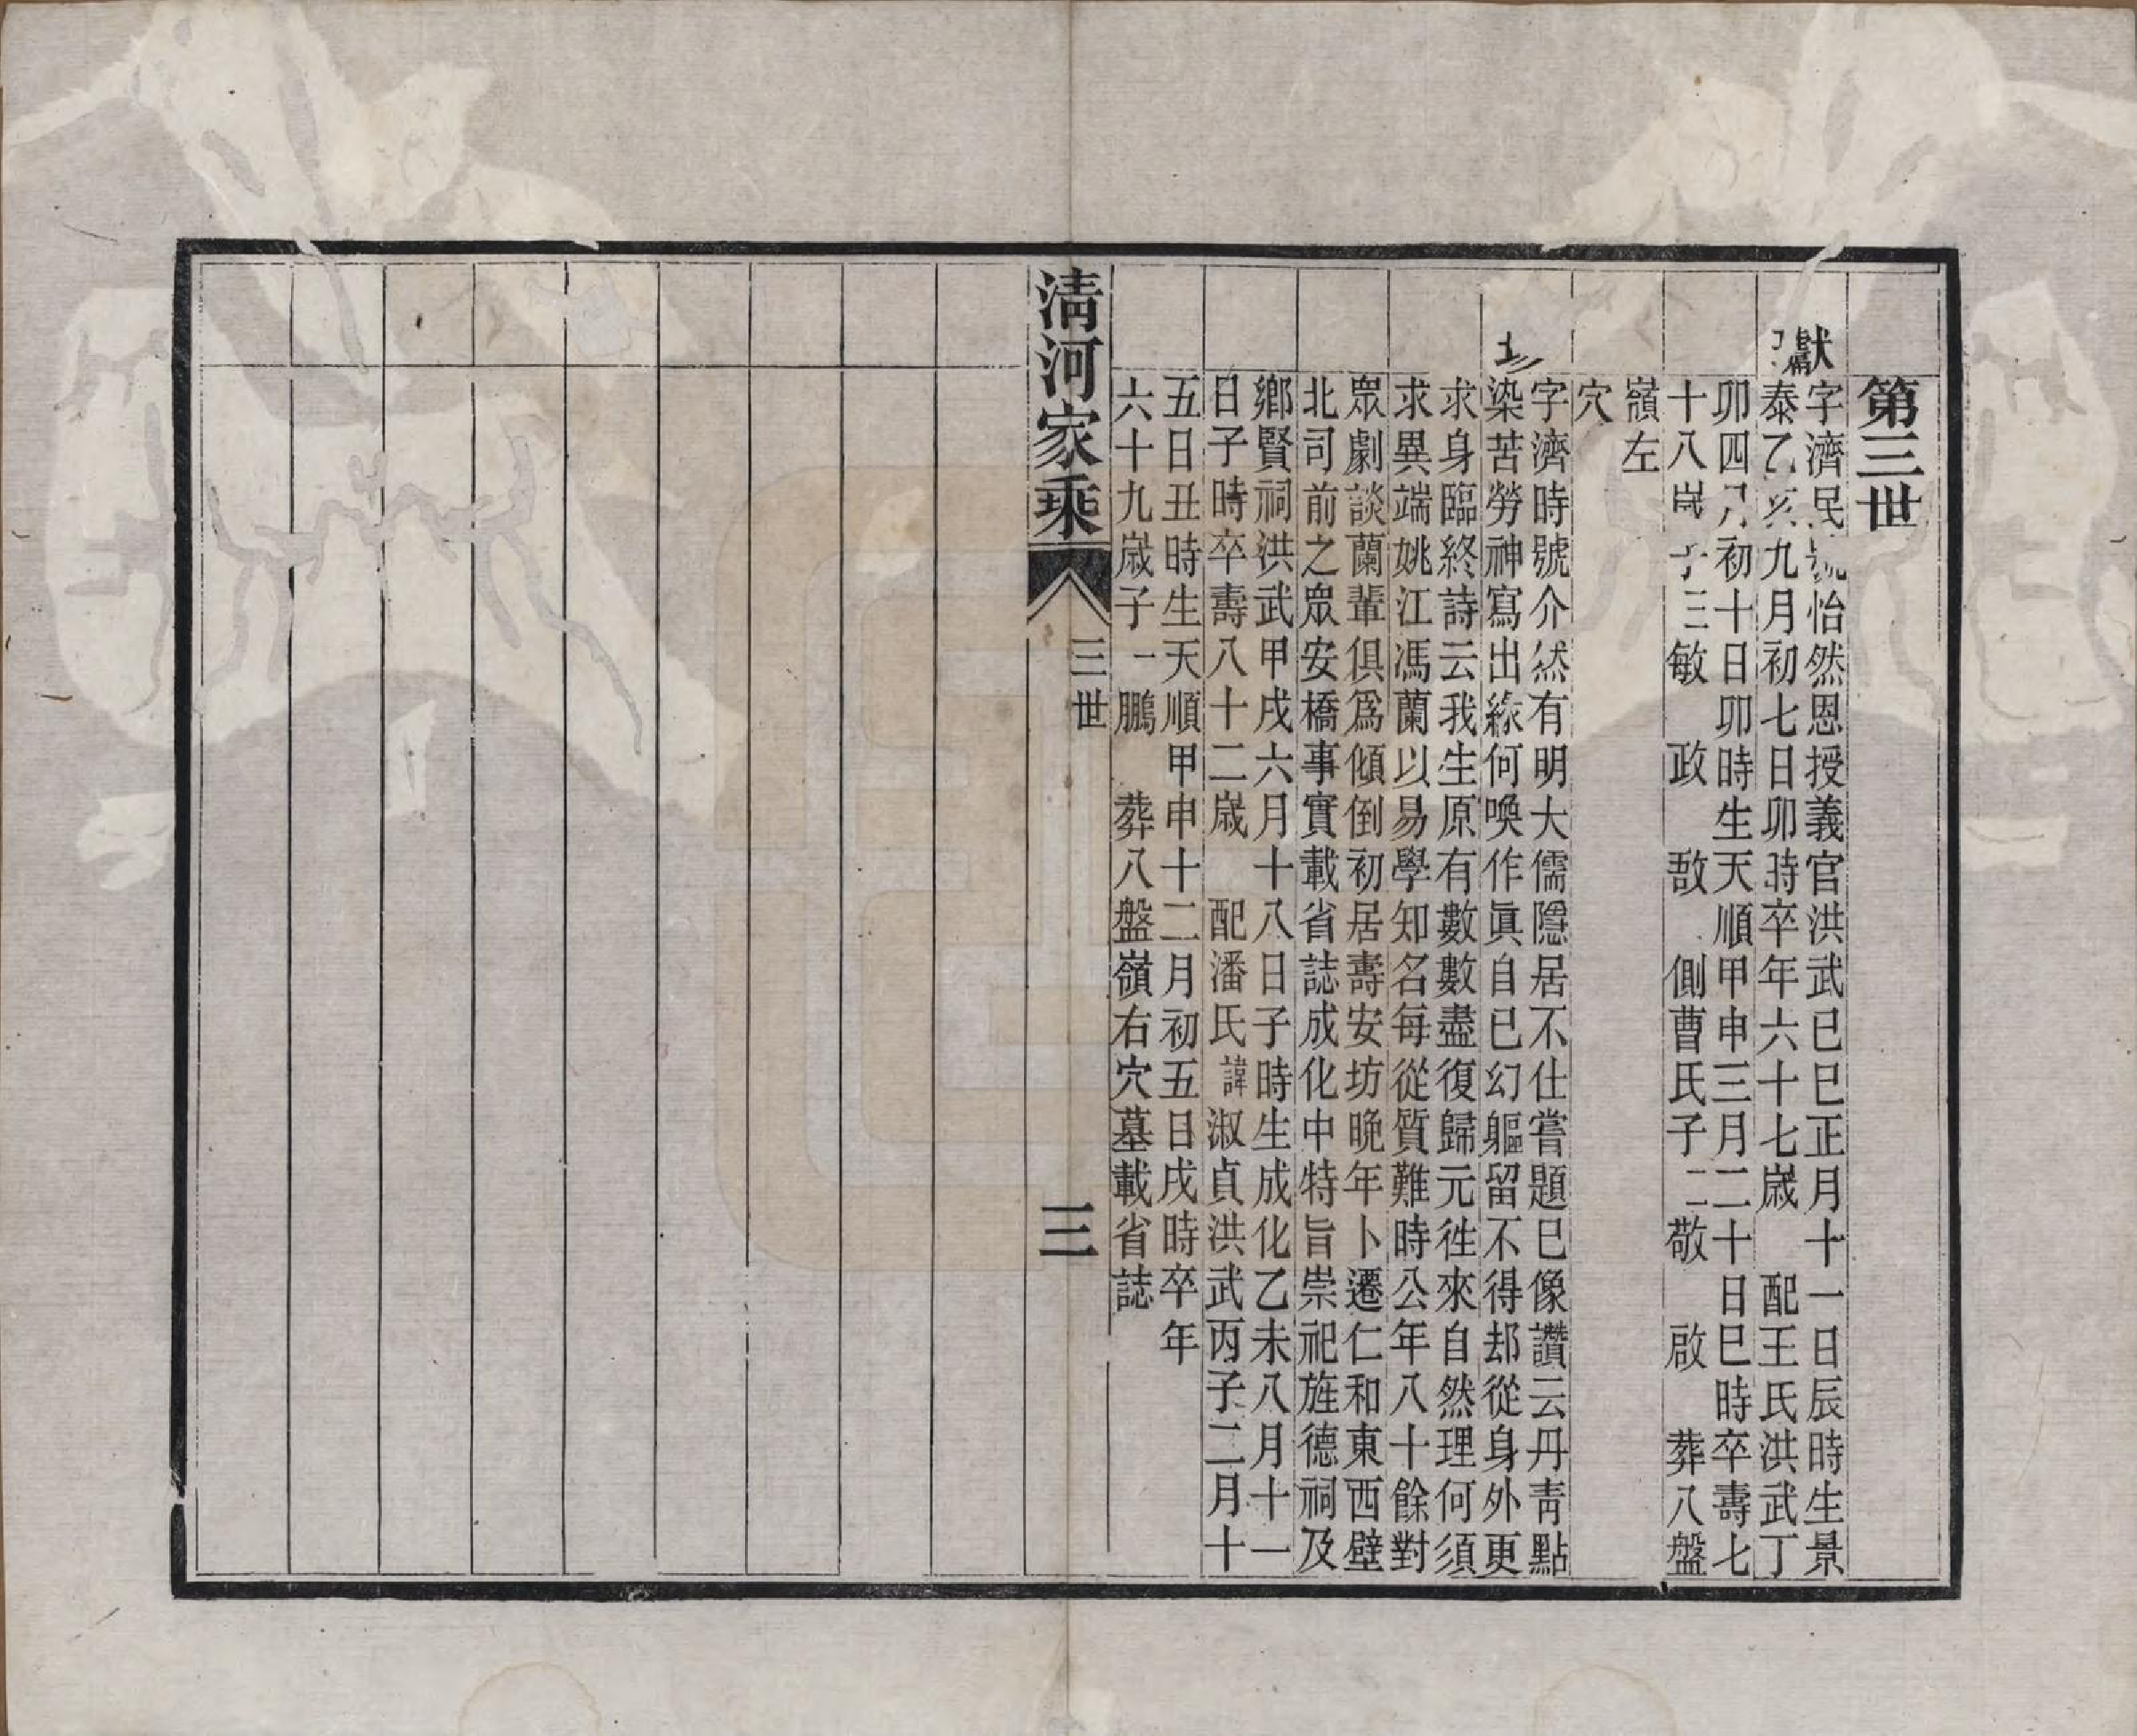 第三世
獻
字濟民號怡然恩授義官洪武己巳正月十一日辰時生景
泰乙亥九月初七日卯時卒年六十七歲 配王氏洪武丁
卯四月初十日卯時生天順甲申三月二十日巳時卒壽七
十八歲子三敏 政 敔 側曹氏子二敬 啟 葬八盤
嶺左
穴
字濟時號介然有明大儒隱居不仕嘗題已像讚云丹靑點
染苦勞神寫出緣何喚作眞自已幻軀留不得却從身外更
求身臨終詩云我生原有數數盡復歸元徃來自然理何須
求異端姚江馮蘭以易學知名每從質難時公年八十餘對
眾劇談蘭輩俱爲傾倒初居壽安坊晚年卜遷仁和東西壁
北司前之眾安橋事實載省誌成化中特旨崇祀旌德祠及
鄉賢祠洪武甲戌六月十八日子時生成化乙未八月十一
日子時卒壽八十二歲 配潘氏諱淑貞洪武丙子二月十
五日丑時生天順甲申十二月初五日戌時卒年
六十九歲子一鵬 葬八盤嶺右穴墓載省誌
淸河家乘
三世
三